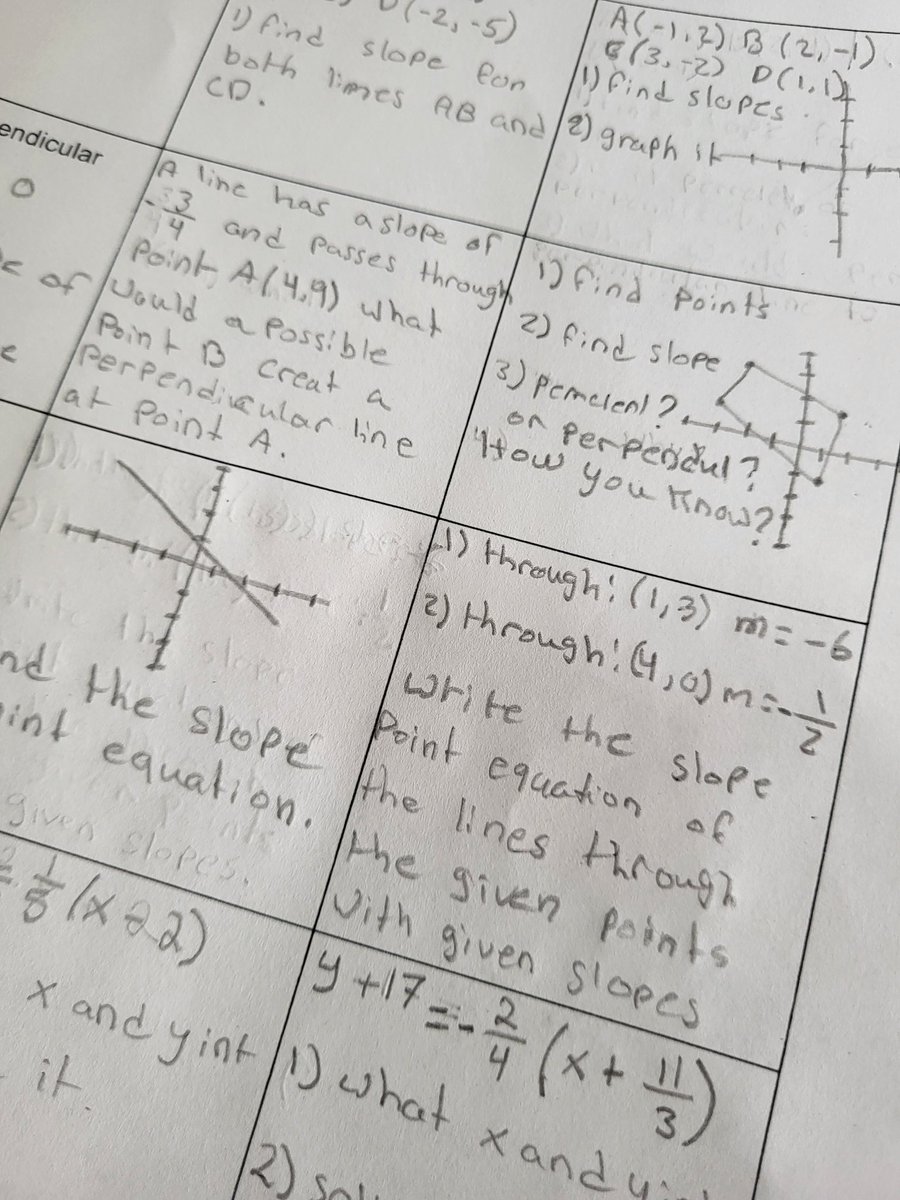 D(-2,-5)
1) find slope for
both lines AB and
CD.
A(-1,2) B (2,-1)
C(3,-2) D(1,1)
1) find slopes
2) graph it
endicular
A line has a slope of
-3/4 and passes through
Point A(4,9) what
would a possible
Point B creat a
perpendicular line
at point A.
1) find points
2) find slope
3) 
or perpendicul?
How you know?
nd the slope
int equation.
1) through: (1,3) m=-6
2) through: (4,0) m=-1/2
write the slope
Point equation of
the lines through
the given points
with given slopes
(x-2)
x and y int
it.
y+17=-2/4(x+11/3)
1) what x and y
2)